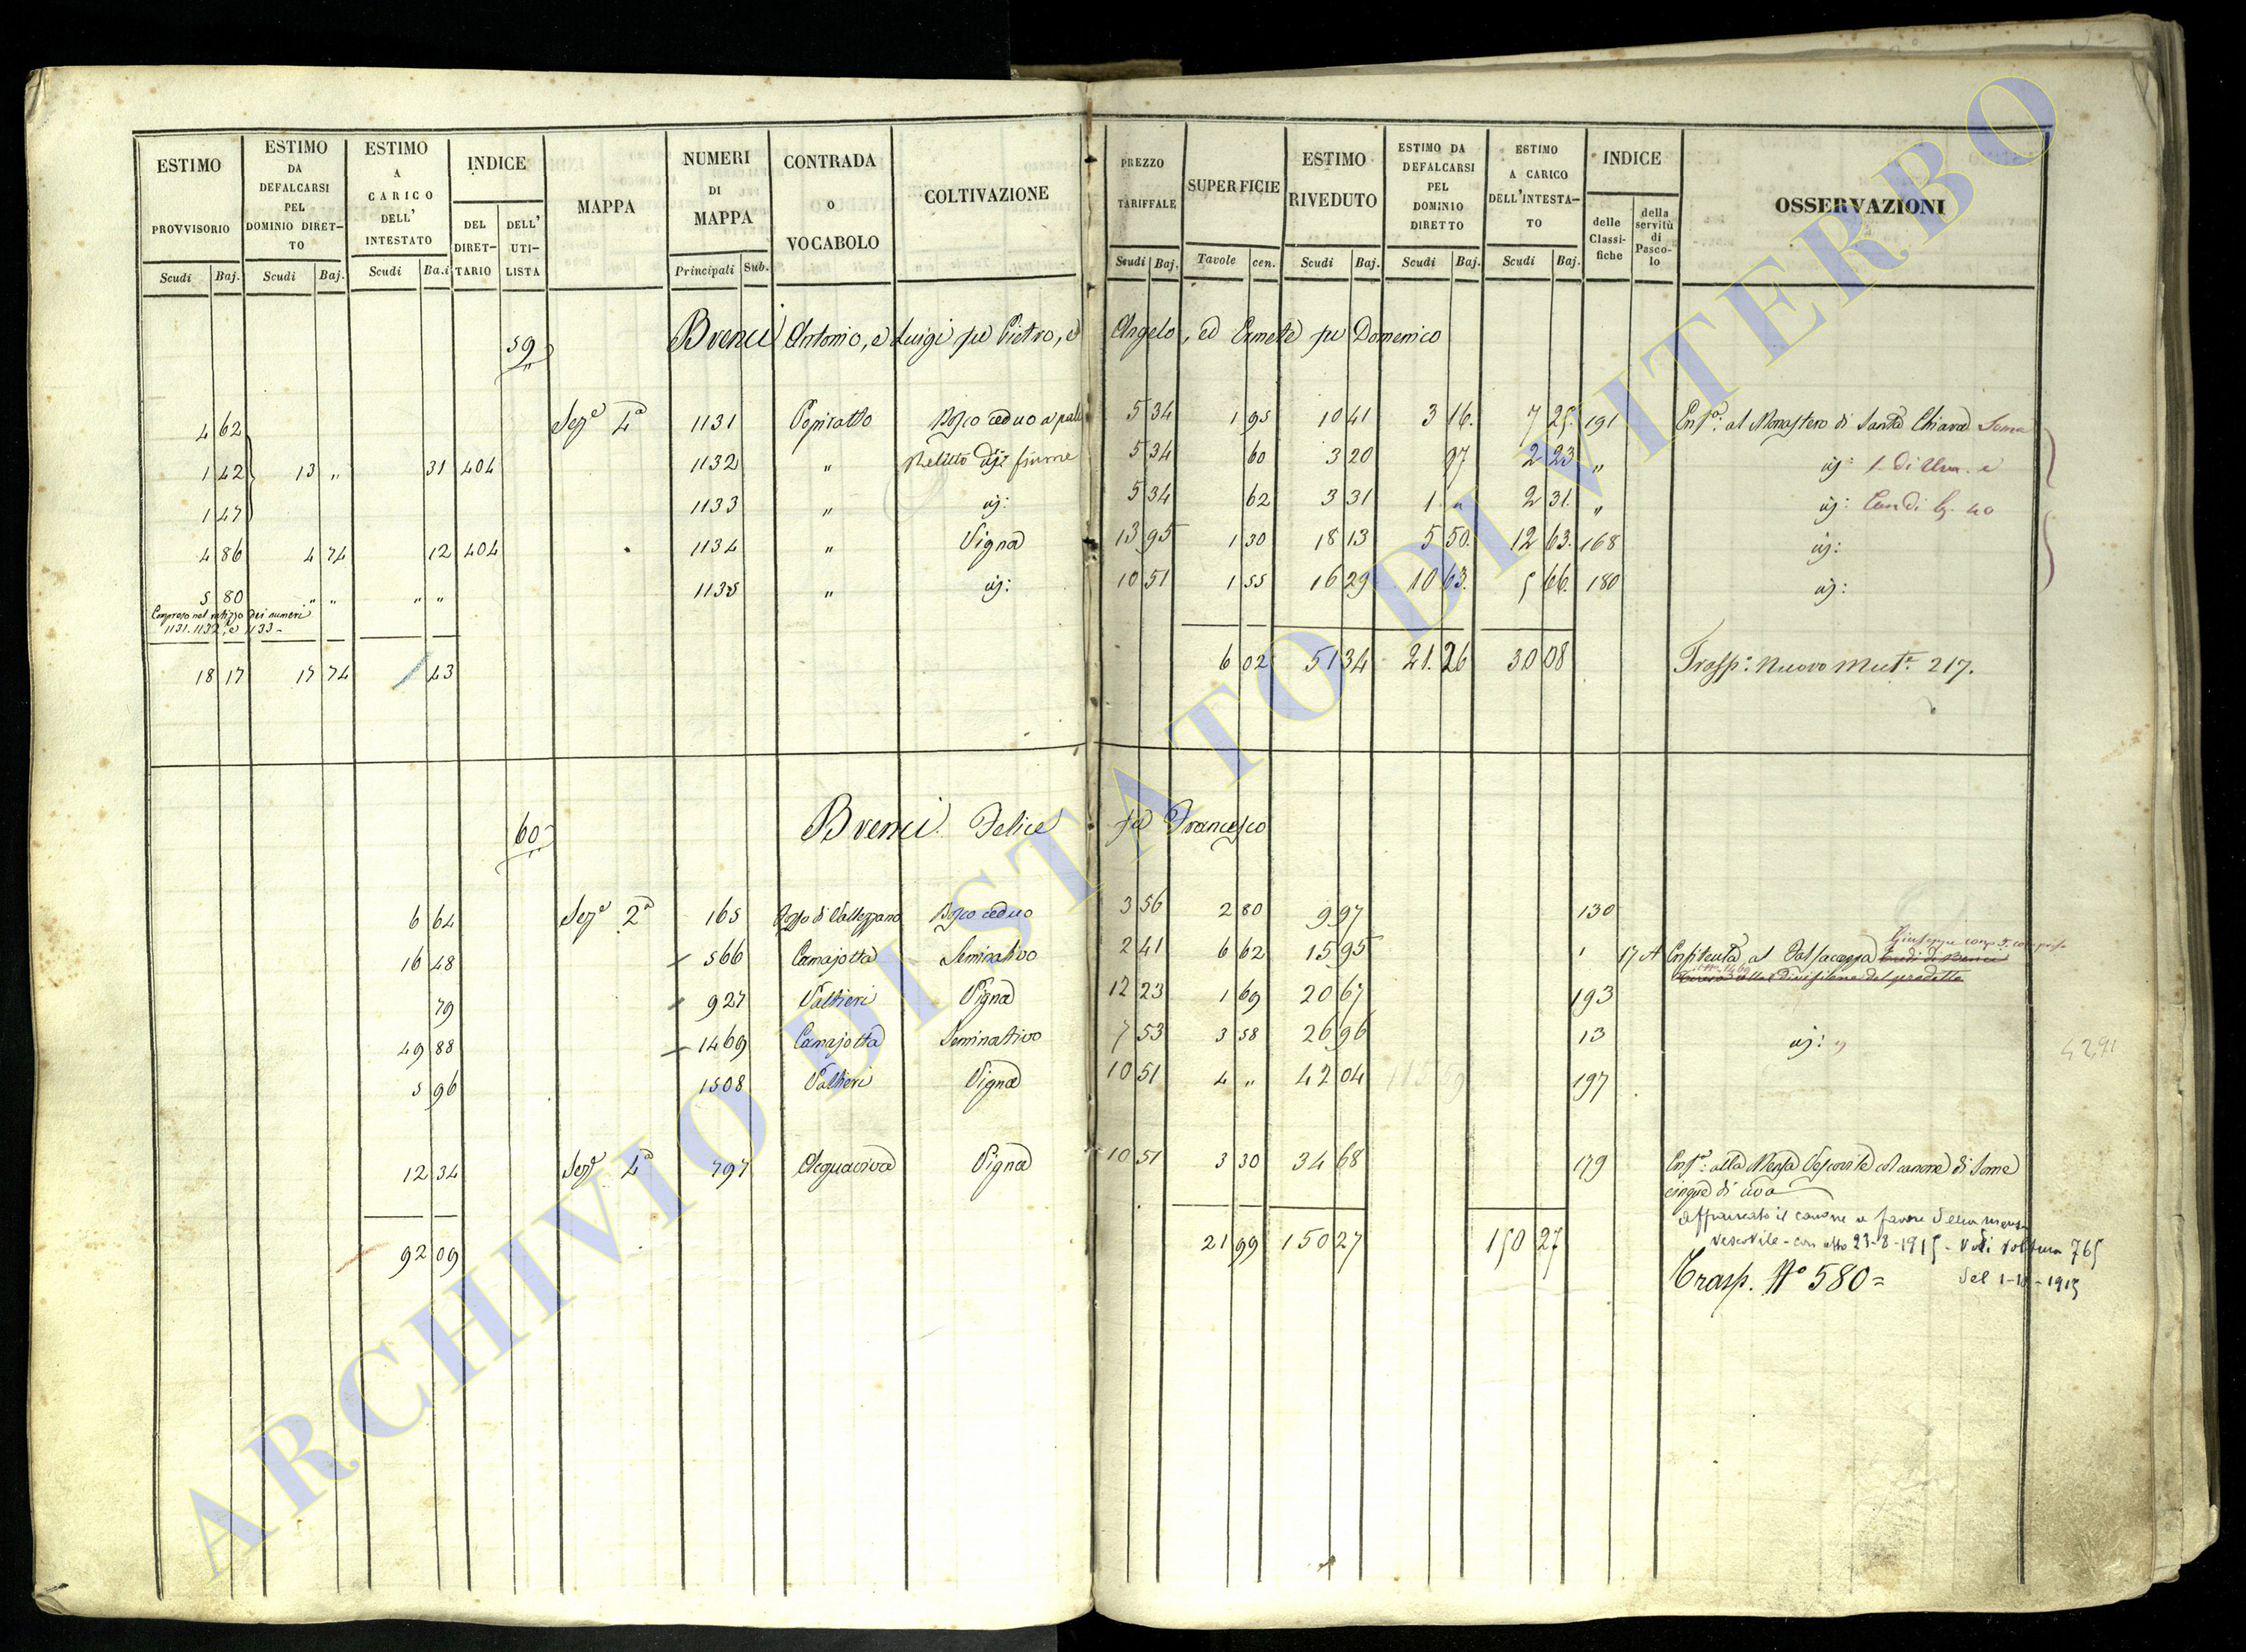 ESTIMO PROVVISORIO Scudi Baj.
ESTIMO DA DEFALCARSI PEL DOMINIO DIRETTO Scudi Baj.
ESTIMO A CARICO DELL' INTESTATO Scudi Ba.i
INDICE DEL DIRETTARIO DELL' UTILISTA
MAPPA
NUMERI DI MAPPA Principali Sub.
CONTRADA o VOCABOLO
COLTIVAZIONE
PREZZO TARIFFALE Scudi Baj.
SUPERFICIE Tavole cen.
ESTIMO RIVEDUTO Scudi Baj.
ESTIMO DA DEFALCARSI PEL DOMINIO DIRETTO Scudi Baj.
ESTIMO A CARICO DELL'INTESTATO Scudi Baj.
INDICE delle Classifiche della servitù di Pascolo
OSSERVAZIONI
59 Brenci Antonio, e Luigi fu Pietro, e Angelo, ed Ermete fu Domenico
4 62 Sez.e 4a 1131 Bosco ceduo a pali 5 34 1 95 10 41 3 16. 7 25. 191 Enf.a al Monastero di Santa Chiara Some
1 42 13 " 31 404 1132 " Relitto di fiume 5 34 60 3 20 97 2 23 " id:
1 47 1133 " id: 5 34 62 3 31 1 " 2 31. " id:
4 86 4 74 12 404 1134 " Vigna 13 95 1 30 18 13 5 50. 12 63. 168 id:
5 80 " " " " 1135 " id: 10 51 1 55 16 29 10 63. 5 66. 180 id:
Compreso nel dei numeri
1131. 1132, e 1133 -
18 17 17 74 43 6 02 51 34 21. 26 30 08 Trasp: Nuovo Mut.e 217.
60 Brenci Felice fu Francesco
6 64 Sez.e 2a 165 Bosco ceduo 3 56 2 80 9 97 130
16 48 566 Camajotta Seminativo 2 41 6 62 15 95 1 17 A Enfiteuta al
79 927 Valtieri Vigna 12 23 1 69 20 67 193
49 88 1469 Camajotta Seminativo 7 53 3 58 26 96 13 id: "
5 96 1508 Valtieri Vigna 10 51 4 " 42 04 197
42,91
12 34 Sez.e 4a 797 Acquaviva Vigna 10 51 3 30 34 68 179 Enf.a alla Mensa Vescovile col canone di Some
cinque di uva
Affrancato il canone a favore della mensa
vescovile - con atto 23-8-1915 - Vedi Voltura 765
del 1-10-1915
92 09 21 99 150 27 150 27 Trasp. No 580 =
ARCHIVIO DI STATO DI VITERBO